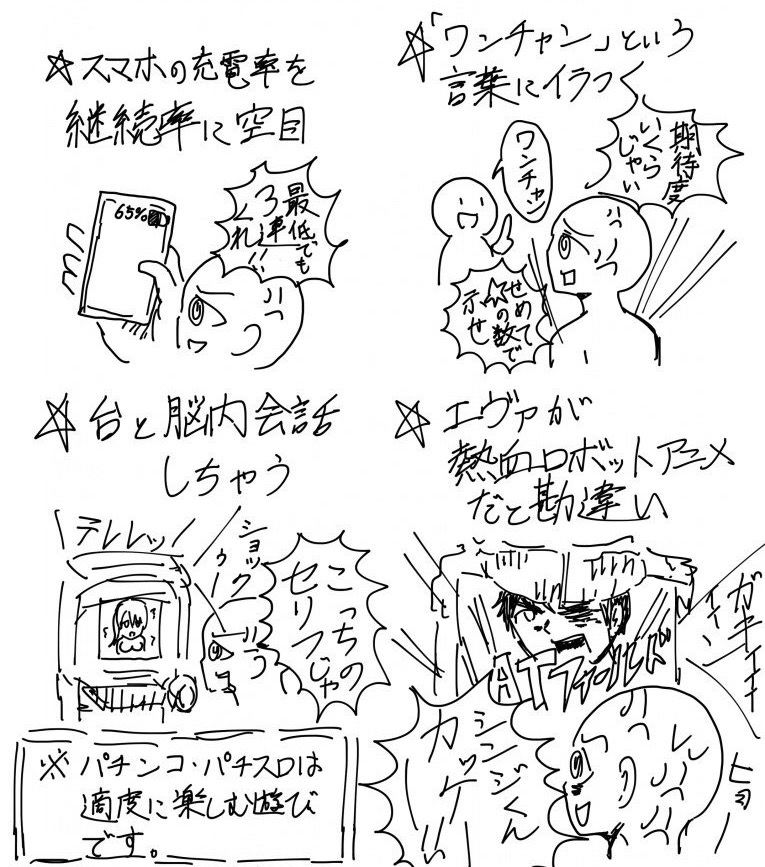 ☆スマホの充電率を
継続率に空目
65%
最低でも
3連!!
くれ
☆「ワンチャン」という
言葉にイラつく
ワンチャン
期待度
いくら
じゃい
せめて
☆の数で
示せ
☆台と脳内会話
しちゃう
テレレッ
ショック
ゥー
こっちの
セリフじゃ
☆エヴァが
熱血ロボットアニメ
だと勘違い
ATフィールド
シンジくん
カッケー
※パチンコ・パチスロは
適度に楽しむ遊び
です。